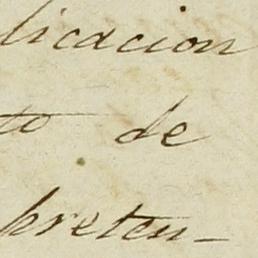 licacion
to de
preten-